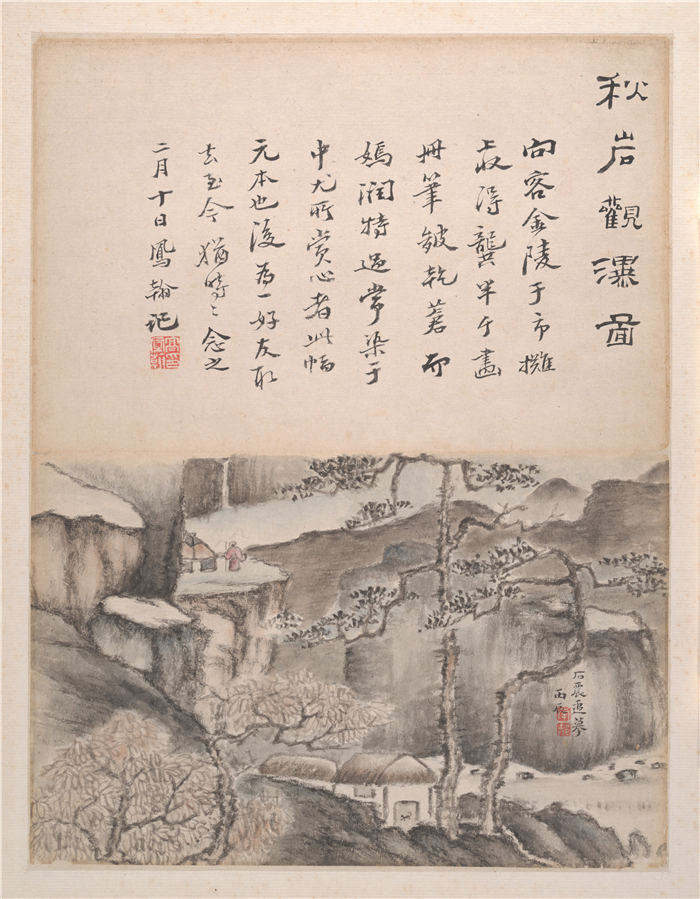 秋岩觀瀑圖
向客金陵于市攤
收得龔半千畫
冊筆皴乾蒼而
嫣潤特過常染于
中尤所賞心者此幅
元本也後為一好友取
去至今猶時〻念之
二月十日鳳翰記
石農追摹
丙